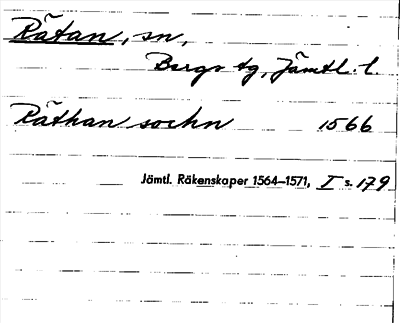 Rätan, sn,
Bergs tg, Jämtl. l.
Räthan sochn 1566
Jämtl. Räkenskaper 1564—1571, I s. 179